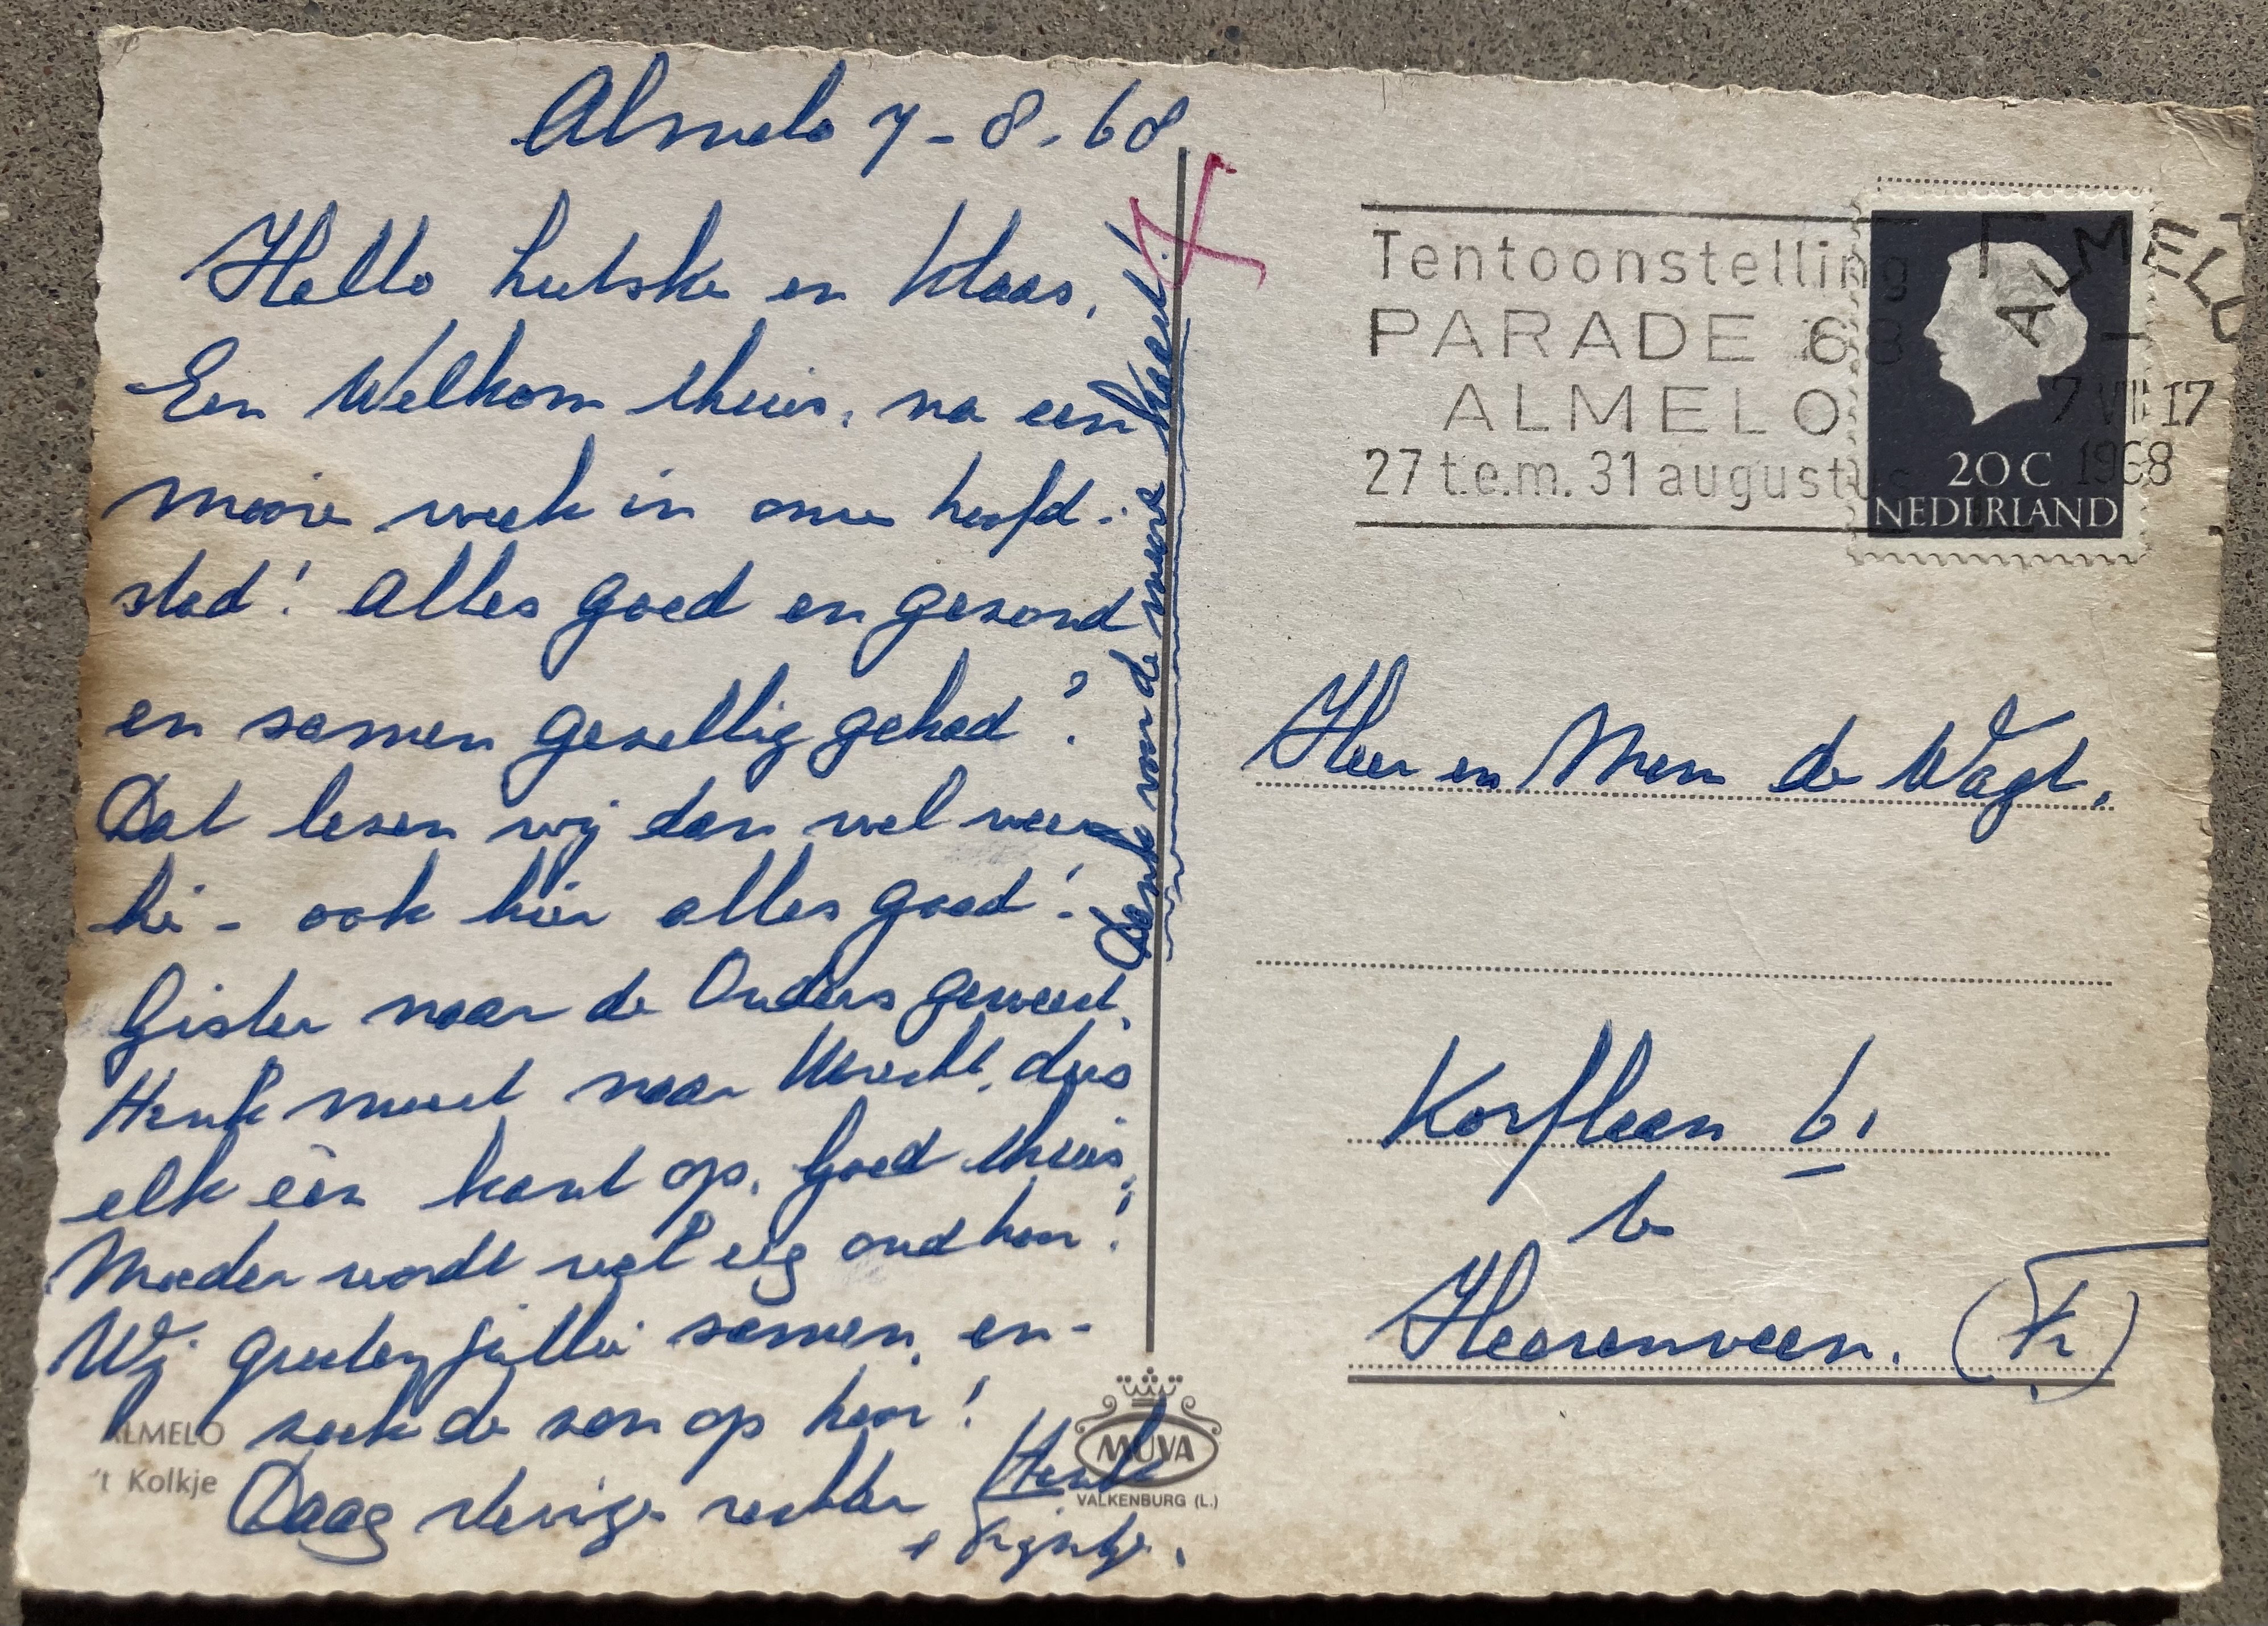 Almelo 7-8-68
Hallo Lutske en Klaas,
Een Welkom thuis, na een
mooie week in onze hoofd-
stad! Alles goed en gezond
en samen gezellig gehad?
Dat lezen wij dan wel weer
hè - ook hier alles goed!
Gister naar de Ouders geweest,
Henk moest naar Utrecht, dus
elk één kant op. Goed thuis,
Moeder wordt wel erg oud hoor!
Wij groeten jullie samen, en -
zoek de zon op hoor!
Daag stevige rechter Henk
+ Sijntje.
Denk van de mooie kaart!
ALMELO
't Kolkje
MUVA
VALKENBURG (L.)
Tentoonstelling
PARADE 68
ALMELO
27 t.e.m. 31 augustus
ALMELO
7 VIII 17
1968
20 C
NEDERLAND
Heer en Mevr de Wagt,
Korflaan 6,
te
Heerenveen. (Fr)